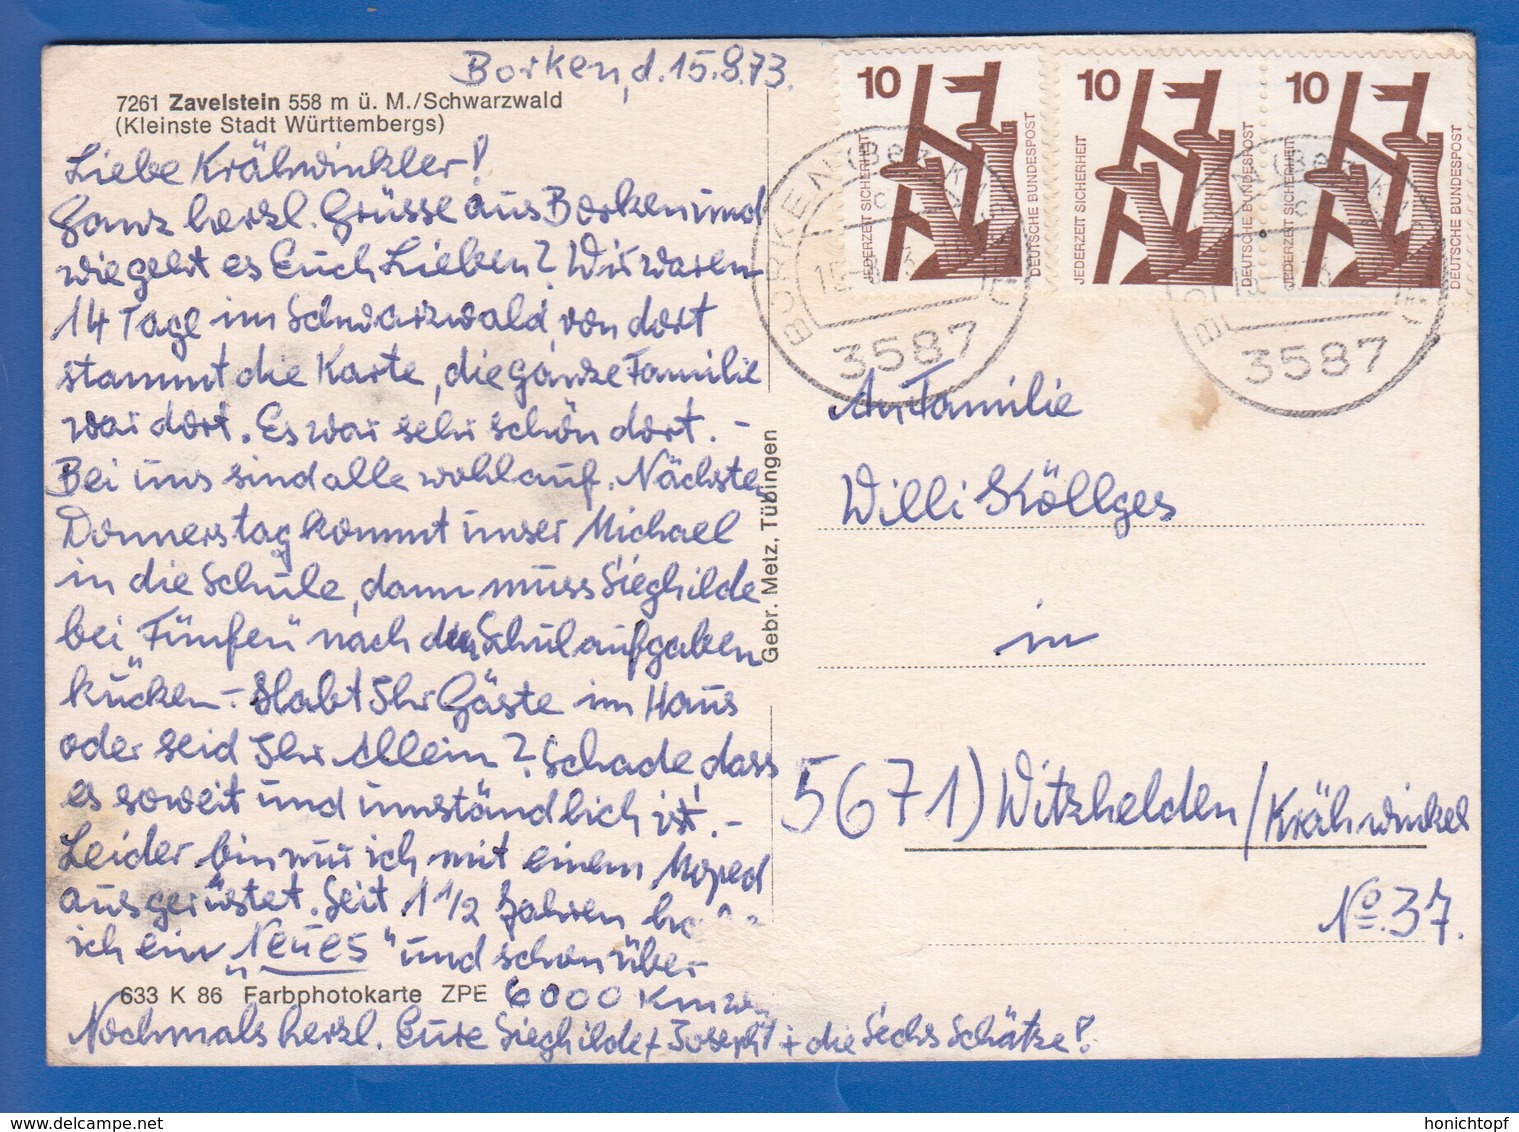 Borken, d. 15.8.73.
7261 Zavelstein 558 m ü. M./Schwarzwald
(Kleinste Stadt Württembergs)
Liebe Krähwinkler!
Ganz herzl. Grüsse aus Borken und
wie geht es Euch Lieben? Wir waren
14 Tage im Schwarzwald, von dort
stammt die Karte, die ganze Familie
war dort. Es war sehr schön dort. -
Bei uns sind alle wohlauf. Nächsten
Donnerstag kommt unser Michael
in die Schule, dann muss Sieghilde
bei "Fünfen" nach den Schulaufgaben
kucken. - Habt Ihr Gäste im Haus
oder seid Ihr Allein? Schade, dass
es soweit und umständlich ist. -
Leider bin nur ich mit einem Moped
ausgerüstet. Seit 1 1/2 Jahren
ich ein "Neues" und schon über
6000 Km
633 K 86 Farbphotokarte ZPE
Nochmals herzl. Eure Sieghilde + Joseph + die Sechs Schätze!
Gebr. Metz, Tübingen
10 JEDERZEIT SICHERHEIT DEUTSCHE BUNDESPOST
10 JEDERZEIT SICHERHEIT DEUTSCHE BUNDESPOST
10 JEDERZEIT SICHERHEIT DEUTSCHE BUNDESPOST
BORKEN (Bez
3587
3587
An Familie
Willi Köllges
in
5671) Witzhelden/Krähwinkel
No. 37.
honichtopf